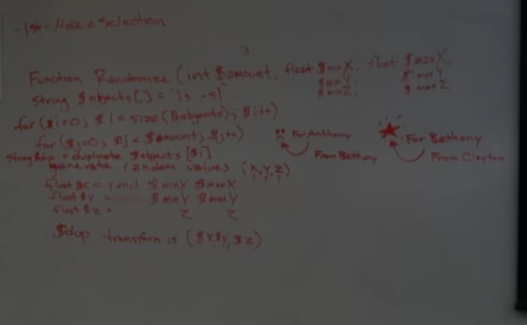 - 1st - Make a Selection
Function Randomize (int $amount, float $minX, float $maxX,
$minY, $maxY
$minZ, $maxZ
string $objects[] = `ls -sl`
for ($i=0; $i < size($objects); $i++)
for ($j=0; $j < $amount; $j++)
string $dup = duplicate $objects[$i]
generate random values (x,y,z)
float $x = rand $minX $maxX
float $y = $minY $maxY
float $z = Z Z
$dup transform is ($x $y, $z)
For Anthony
From Bethany
For Bethany
From Clayton